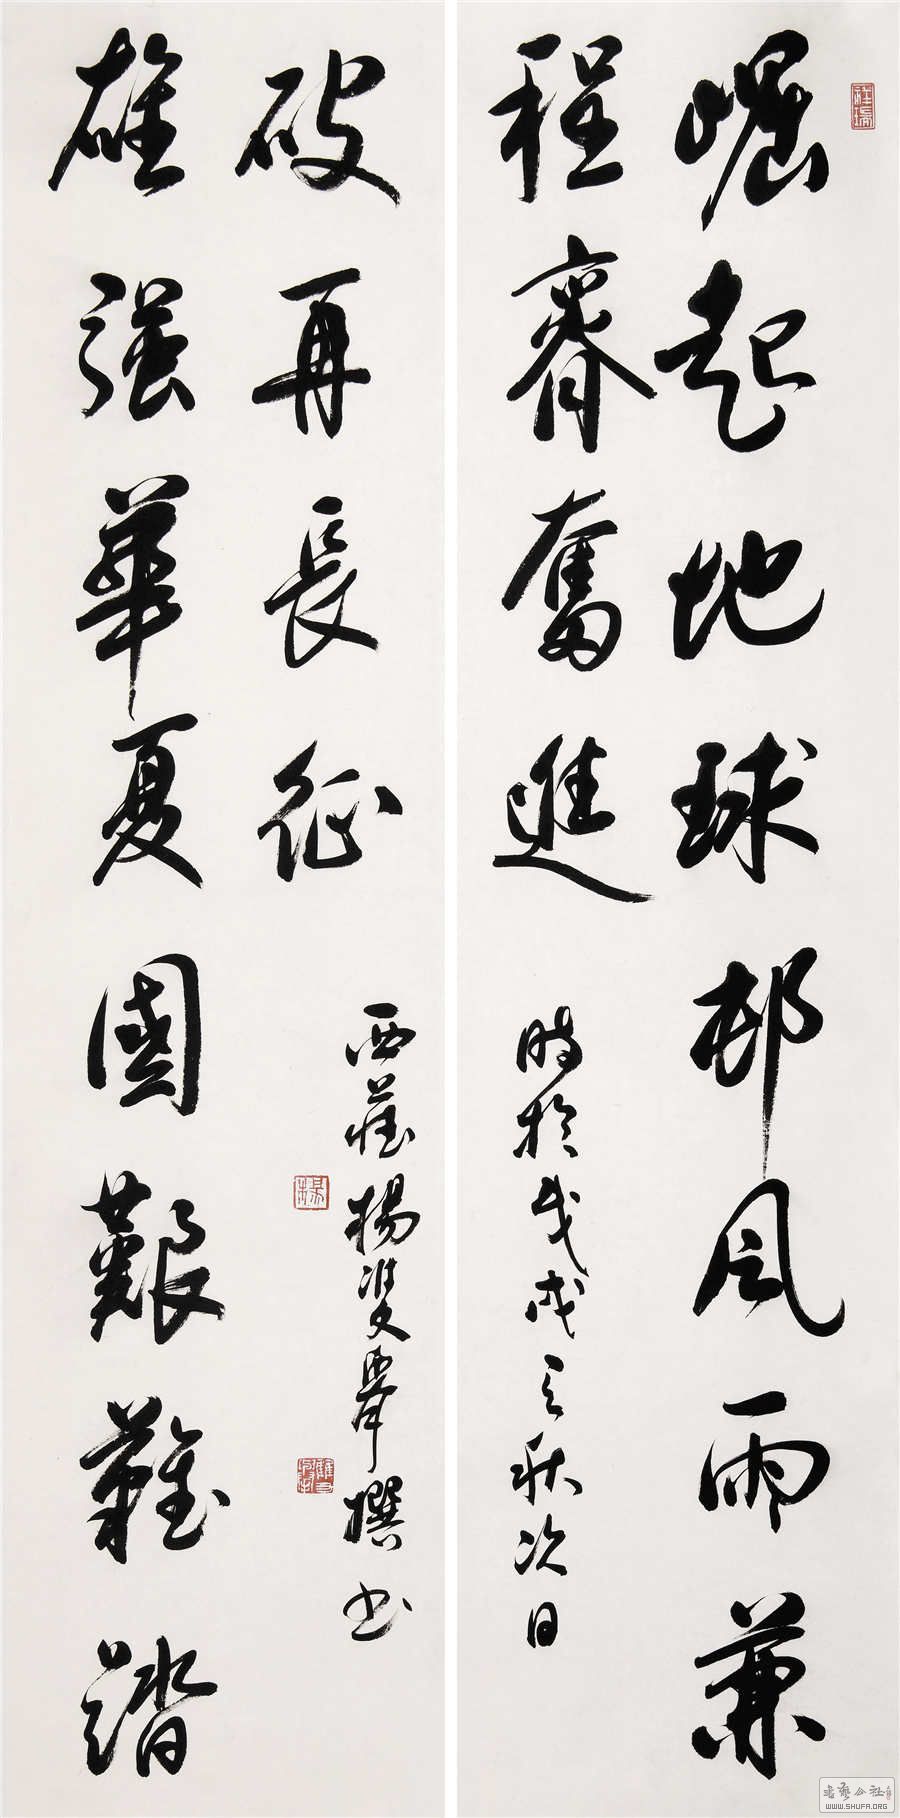 崛起地球邨風雨兼
程齊奮進
時於戊戌之秋次日
雄強華夏國艱難踏
破再長征
西藏楊雙舉撰书
書藝公社
WWW.SHUFA.ORG